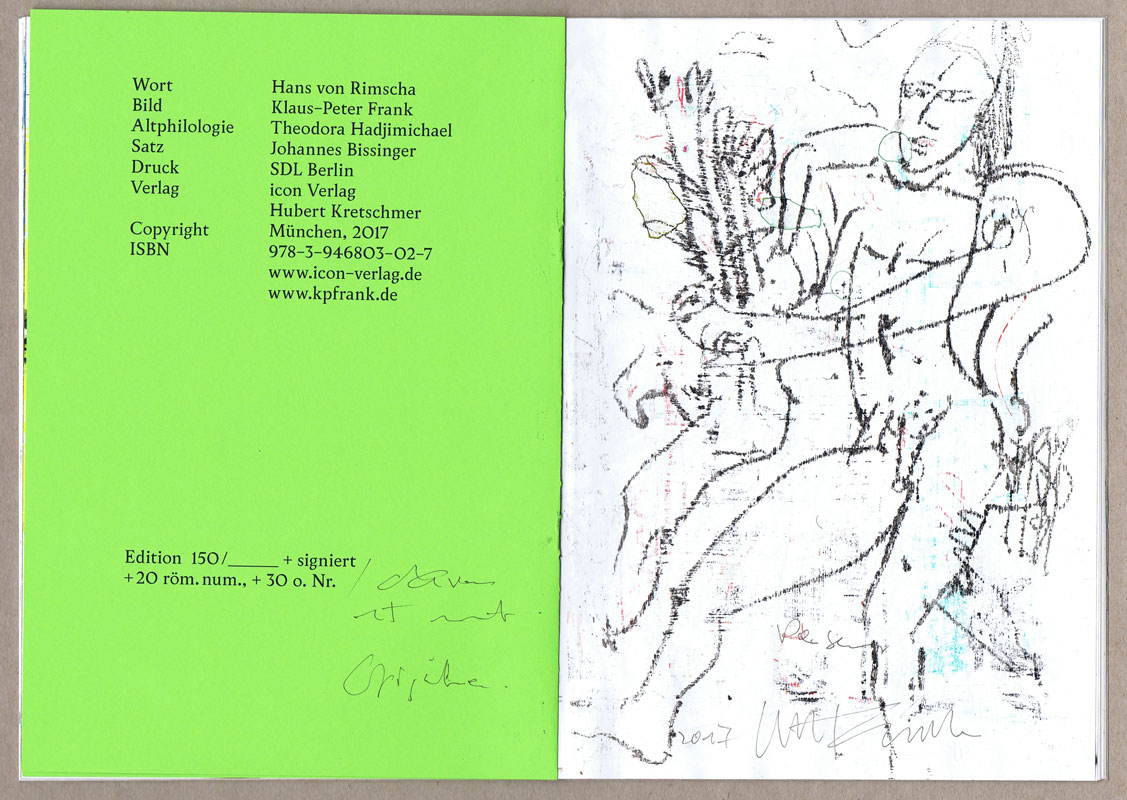 Wort Hans von Rimscha
Bild Klaus-Peter Frank
Altphilologie Theodora Hadjimichael
Satz Johannes Bissinger
Druck SDL Berlin
Verlag icon Verlag
Hubert Kretschmer
Copyright München, 2017
ISBN 978-3-946803-02-7
www.icon-verlag.de
www.kpfrank.de
Edition 150/_____ + signiert
+20 röm. num., + 30 o. Nr.
2017